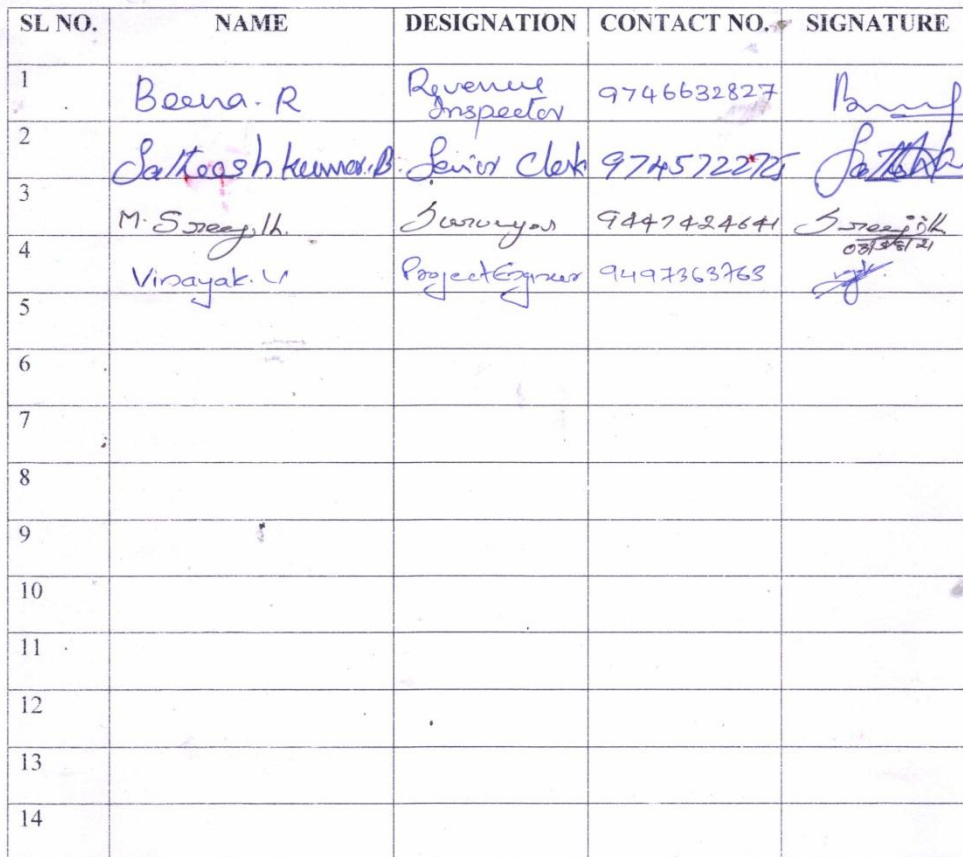 SL NO. NAME DESIGNATION CONTACT NO. SIGNATURE
1 Beena. R Revenue Inspector 9746632827
2 Satheesh kumar. B Senior Clerk 9745722725
3 M. Sreejith. Surveyor 9447424641 Sreejith
4 Vinayak. V Project Engineer 9497363763
5
6
7
8
9
10
11
12
13
14